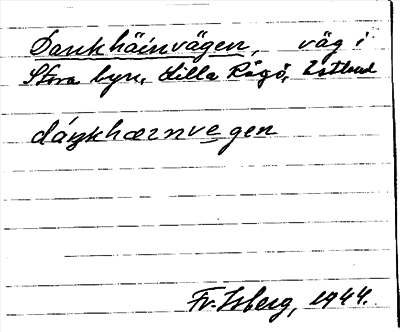 Dankhäinvägen, väg i
Stora byn, Lilla Rågö, Estland
dáŋkhærnvegen
Fr. Isberg, 1944.